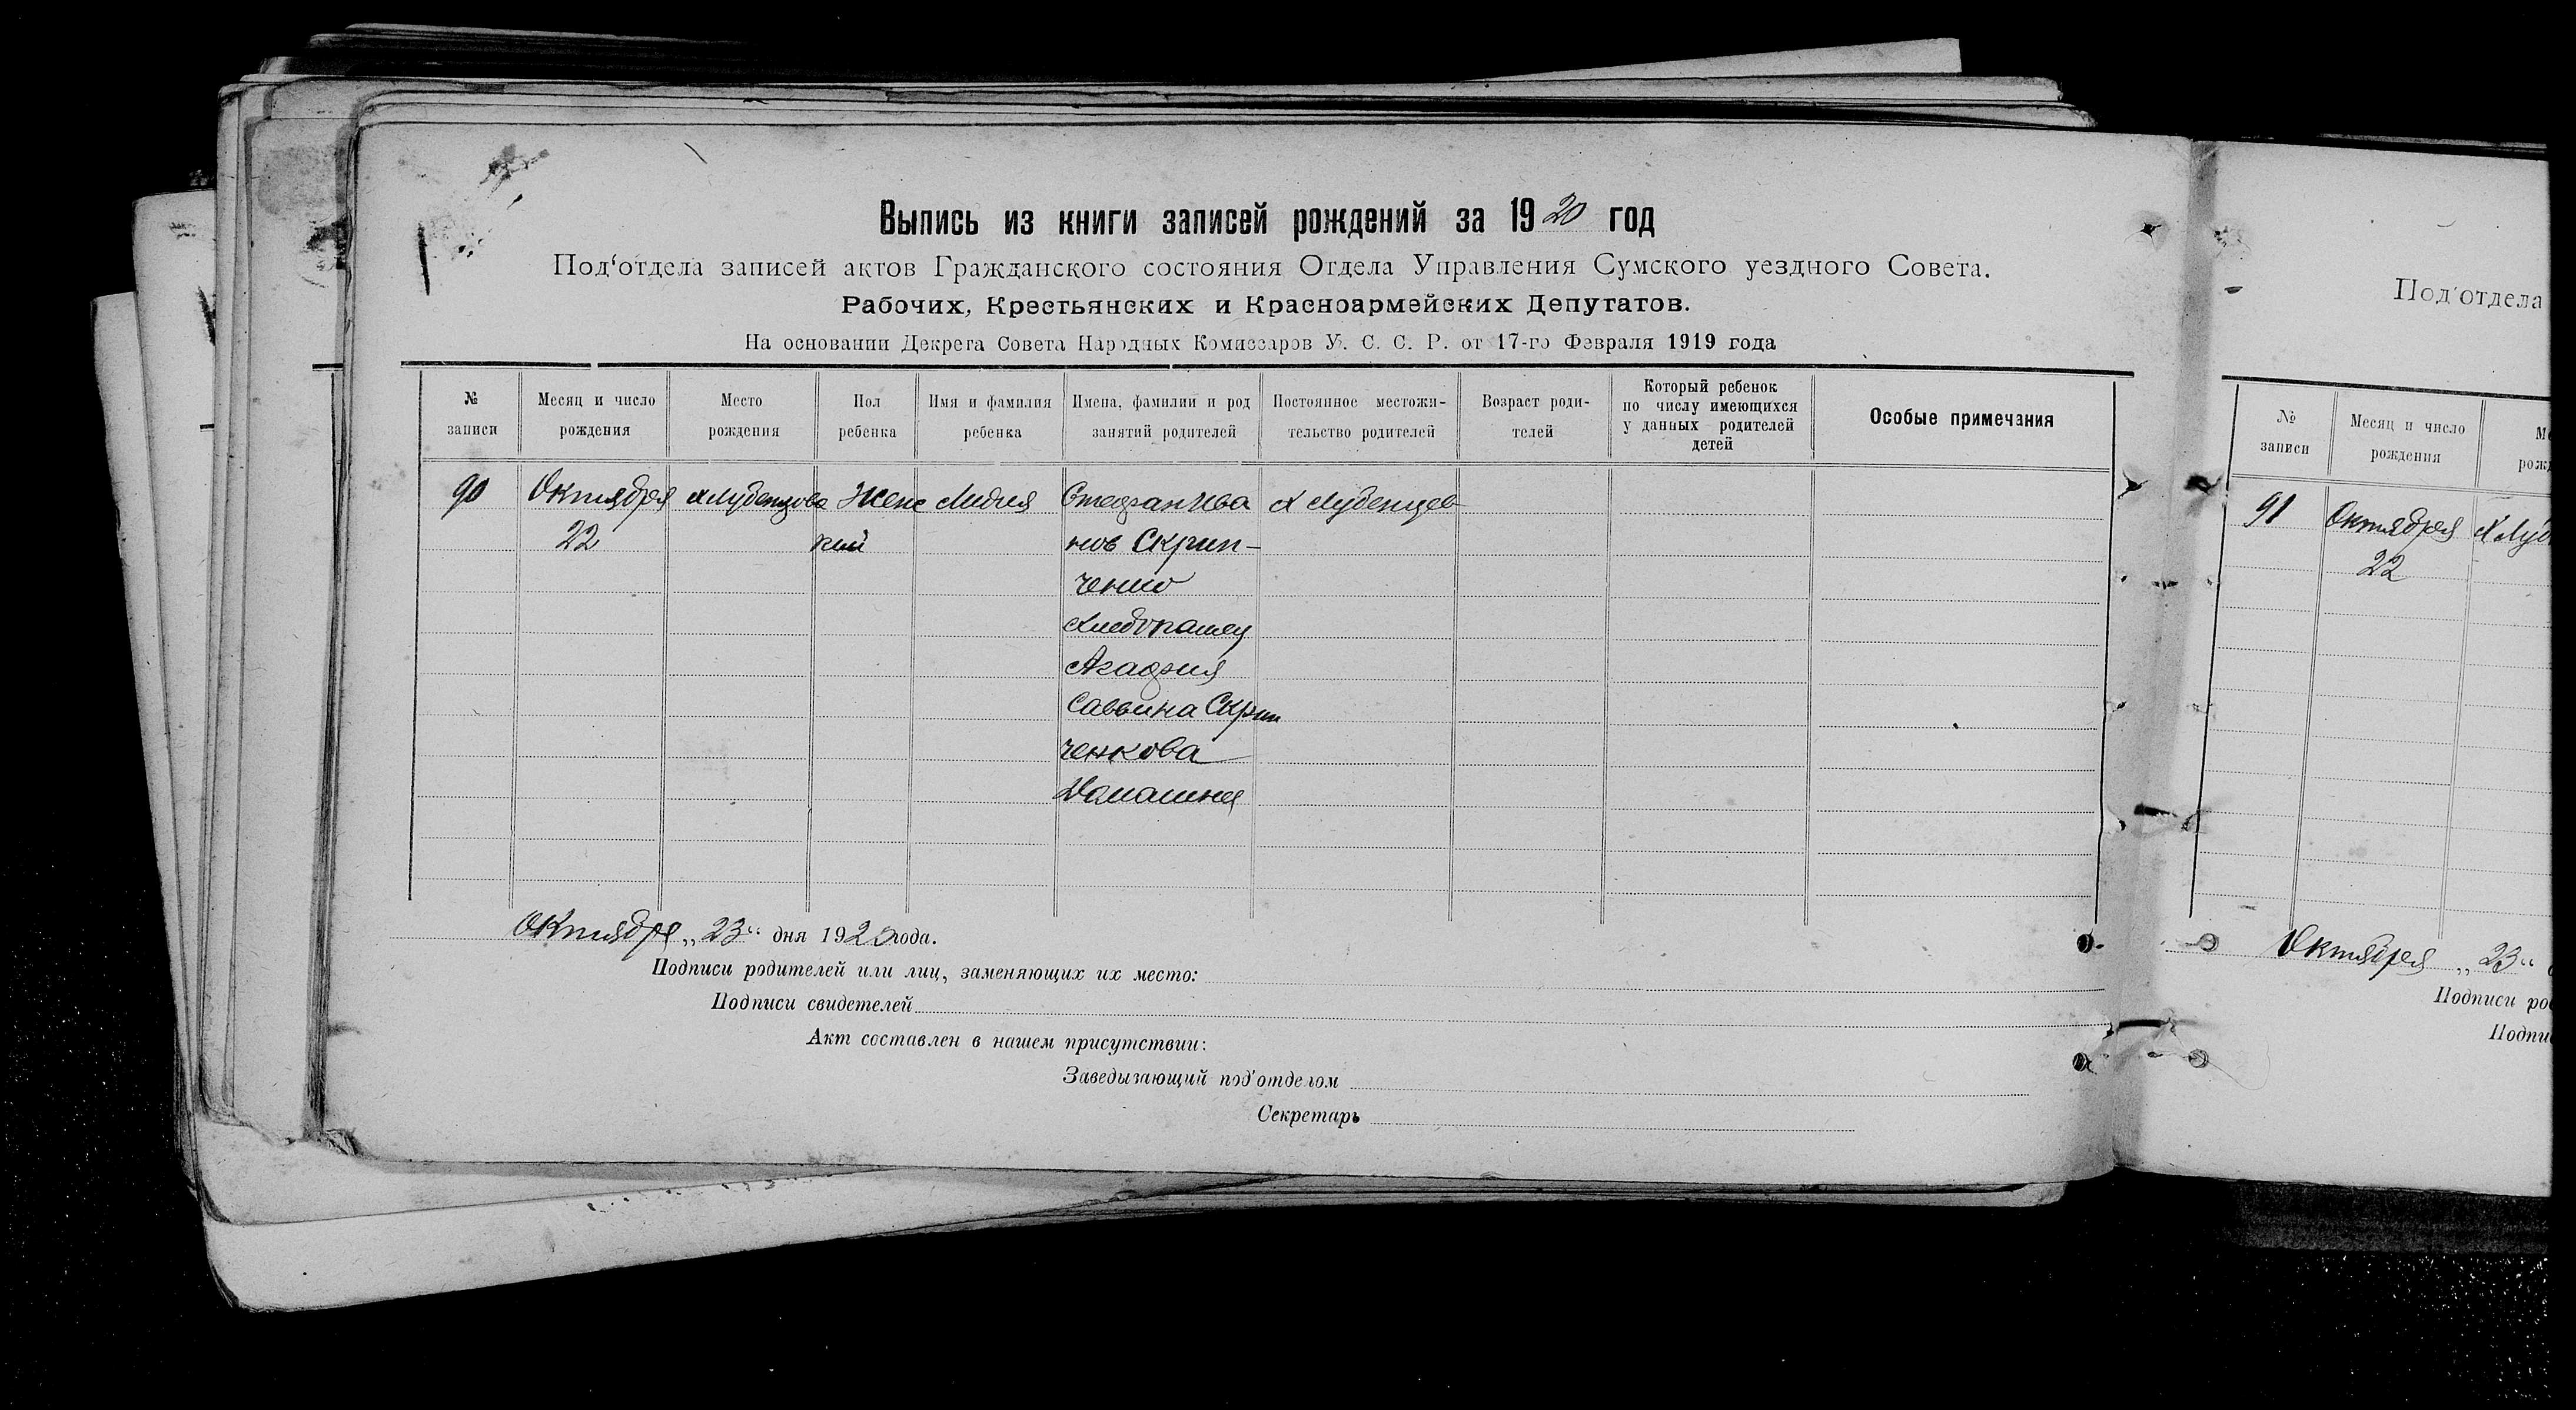 Выпись из книги записей рождений за 1920 год
Под‘отдела записей актов Гражданского состояния Отдела Управления Сумского уездного Совета.
Рабочих, Крестьянских и Красноармейских Депутатов.
На основании Декрета Совета Народных Комиссаров У. С. С. Р. от 17-го Февраля 1919 года
№ записи
Месяц и число рождения
Место рождения
Пол ребенка
Имя и фамилия ребенка
Имена, фамилии и род занятий родителей
Постоянное местожительство родителей
Возраст родителей
Который ребенок по числу имеющихся у данных родителей детей
Особые примечания
90
Октября
22
Х Лубенцова
Женс
кий
Лидия
Стефан Ива
нов Скрип-
ченко
Хлебопашец
Агафия
Саввина Скрип
ченкова
Домашняя
Х Лубенцев
Октября „23“ дня 1920 года.
Подписи родителей или лиц, заменяющих их место:
Подписи свидетелей
Акт составлен в нашем присутствии:
Заведывающий под'отделом
Секретарь
Под'отдела
№ записи
Месяц и число рождения
91
Октября
22
Октября „23“